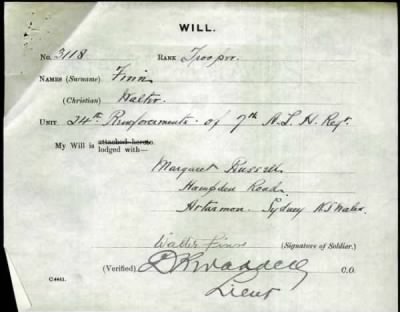 WILL.
No. 3118 RANK Trooper.
NAMES (Surname) Finn
(Christian) Walter.
UNIT 24th Reinforcements of 7th A. L. H. Regt.
My Will is attached hereto.
lodged with—
Margaret Russell
Hampden Road
Artarmon. Sydney N S Wales
Walter Finn (Signature of Soldier.)
(Verified) C.O.
C.4441. Lieut